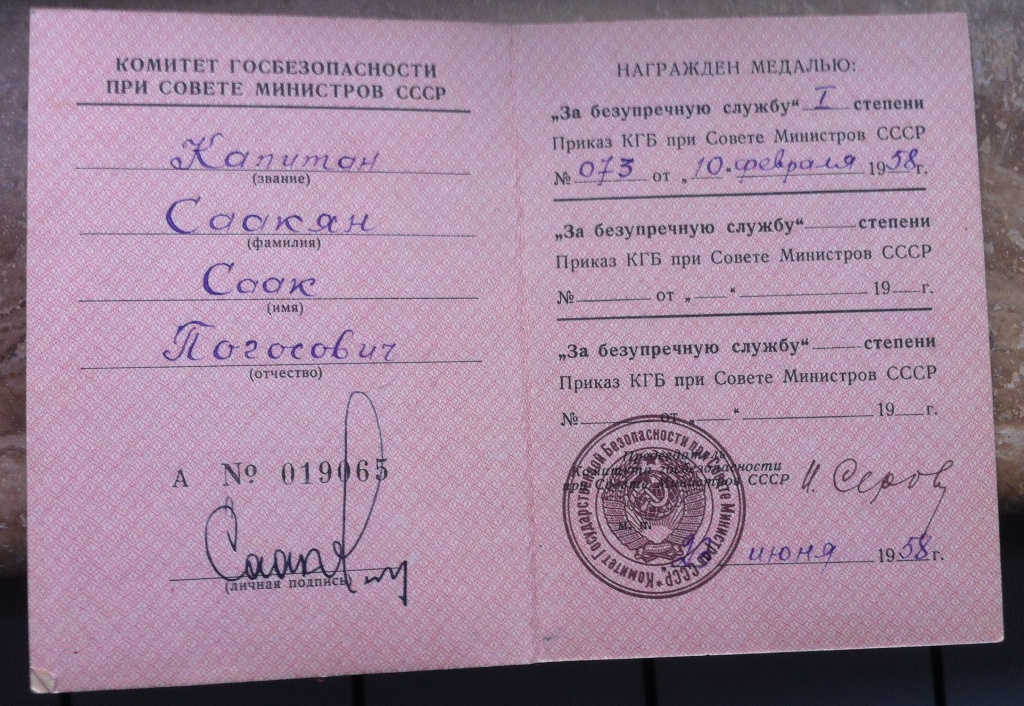 КОМИТЕТ ГОСБЕЗОПАСНОСТИ
ПРИ СОВЕТЕ МИНИСТРОВ СССР
Капитан
(звание)
Саакян
(фамилия)
Саак
(имя)
Погосович
(отчество)
А № 019065
(личная подпись)
НАГРАЖДЕН МЕДАЛЬЮ:
„За безупречную службу“ I степени
Приказ КГБ при Совете Министров СССР
№ 073 от „10“ февраля 1958 г.
„За безупречную службу“ степени
Приказ КГБ при Совете Министров СССР
№ от „ “ 19 г.
„За безупречную службу“ степени
Приказ КГБ при Совете Министров СССР
№ от „ “ 19 г.
Председатель
Комитета госбезопасности
при Совете Министров СССР И. Серов
м. п.
июня 1958 г.
Комитет Государственной Безопасности при Совете Министров СССР